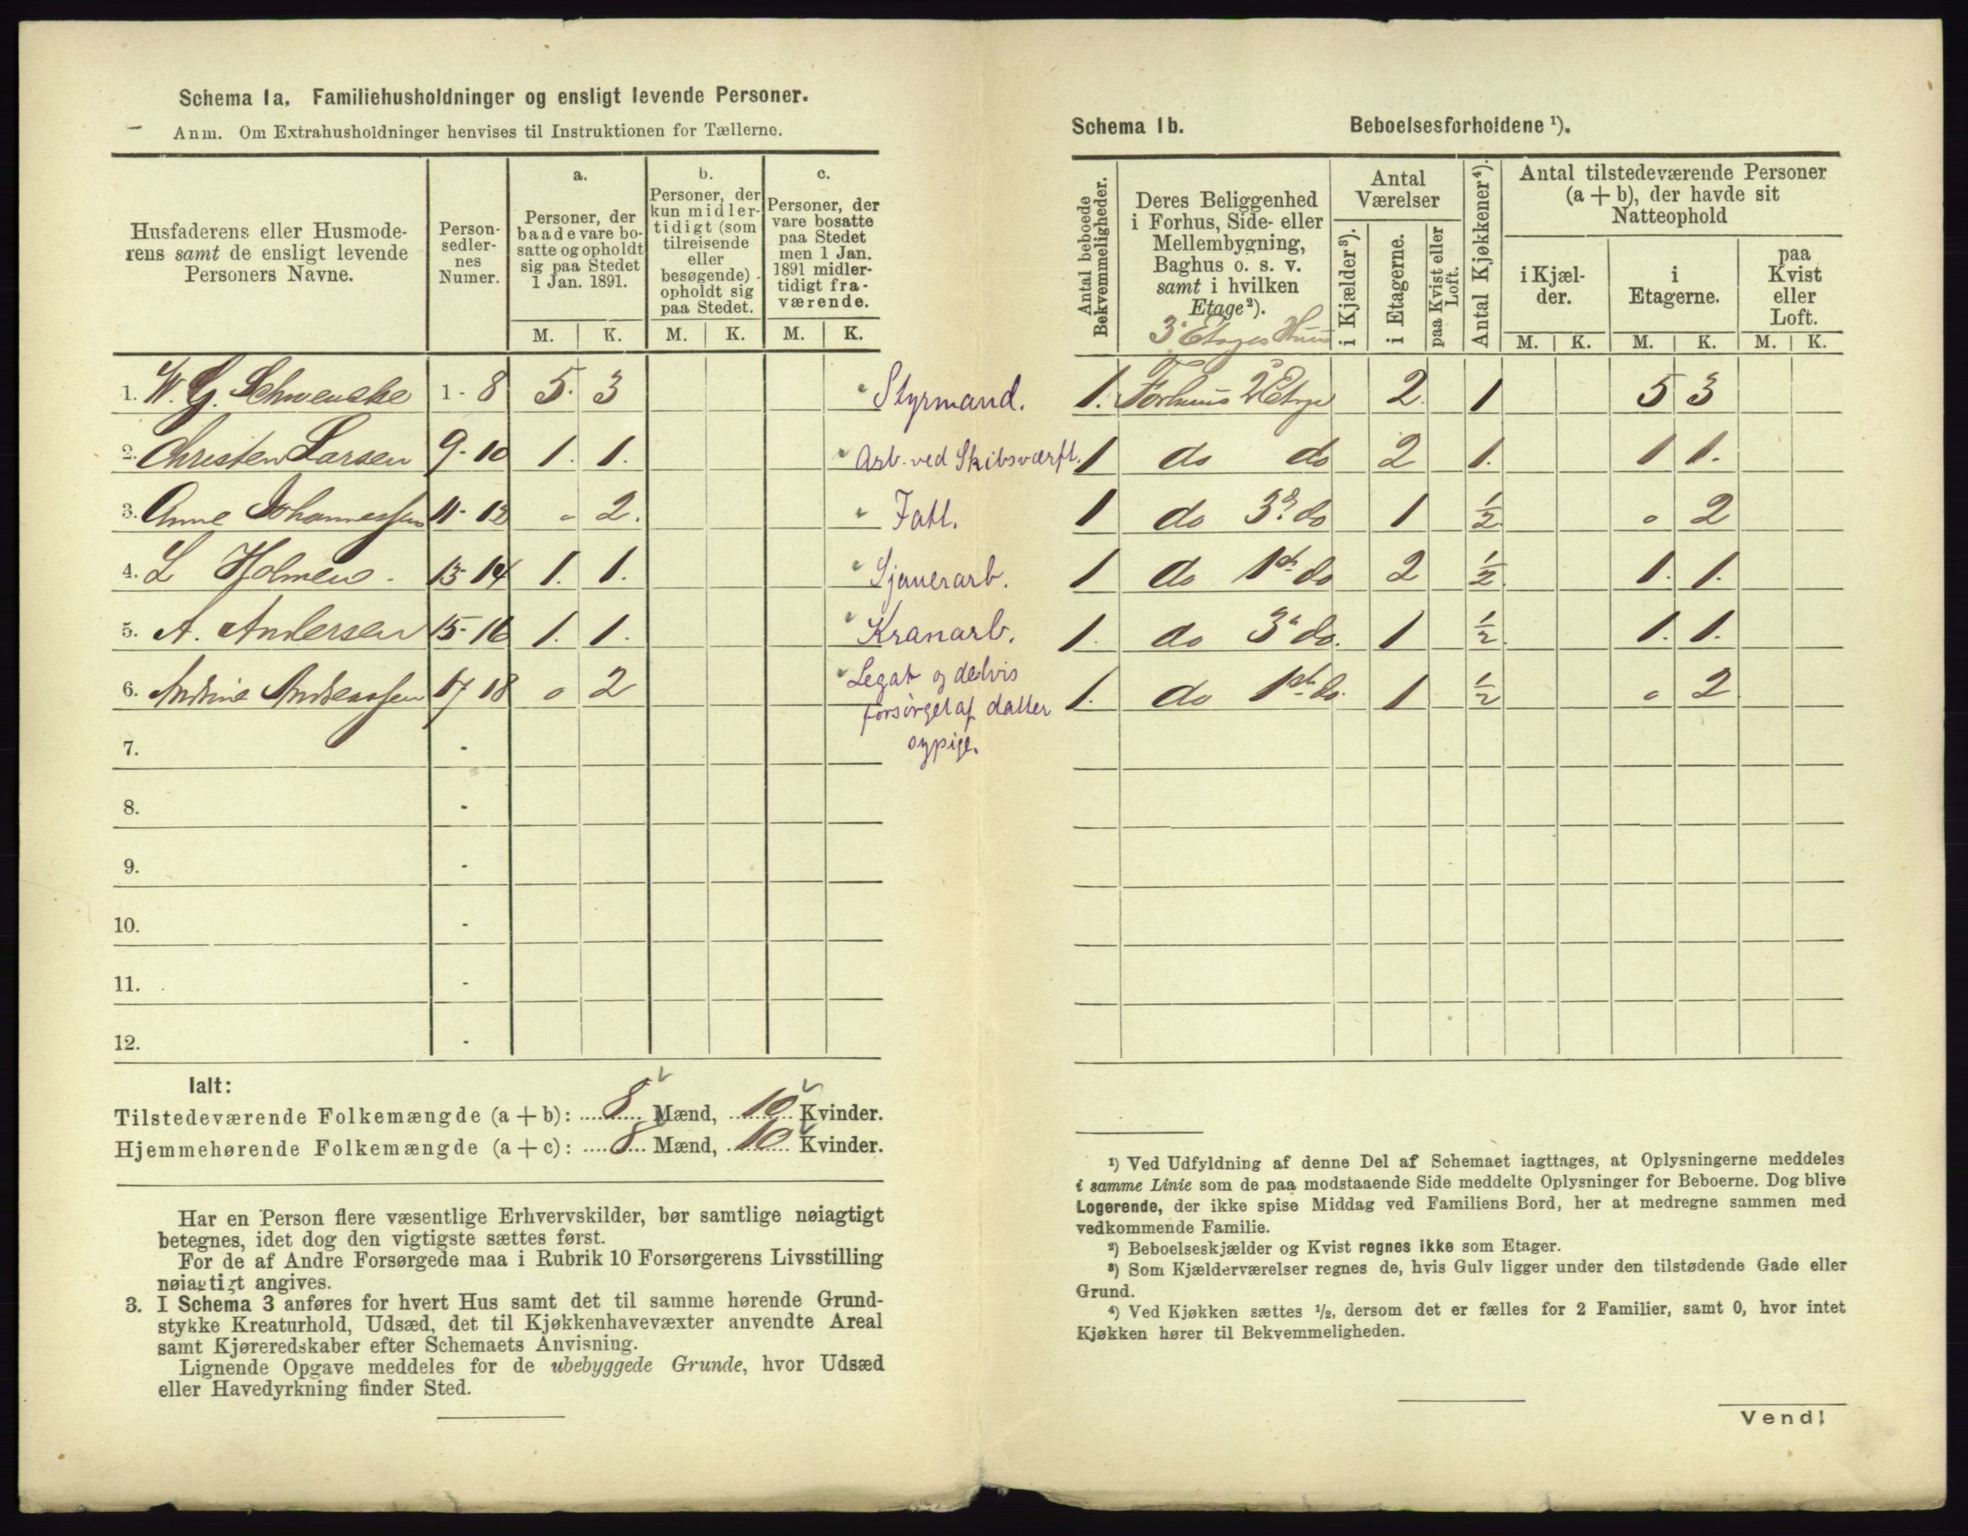 Schema 1a. Familiehusholdninger og ensligt levende Personer.
Anm. Om Extrahusholdninger henvises til Instruktionen for Tællerne.
Husfaderens eller Husmode-
rens samt de ensligt levende
Personers Navne.
Person-
sedler-
nes
Numer.
a.
Personer, der
baade vare bo-
satte og opholdt
sig paa Stedet
1 Jan. 1891.
b.
Personer, der
kun midler-
tidigt (som
tilreisende
eller
besøgende)
opholdt sig
paa Stedet.
c.
Personer, der
vare bosatte
paa Stedet
men 1 Jan.
1891 midler-
tidigt fra-
værende.
M. K. M. K. M. K.
1. W. G. Schwenske 1 - 8 5. 3 Styrmand.
2. Christen Larsen 9-10 1. 1. Arb. ved Skibsværft.
3. Anne Johannessen 11-12 " 2. Fatt.
4. L Holmen. 13-14 1. 1. Sjauerarb.
5. A. Andersen 15-16 1. 1. Kranarb.
6. Andrine Andreassen 17-18 o 2 Legat og delvis
forsørget af datter
sypige.
7. -
8. -
9. -
10. -
11. -
12. -
Ialt:
Tilstedeværende Folkemængde (a + b): 8 Mænd, 10 Kvinder.
Hjemmehørende Folkemængde (a + c): 8 Mænd, 10 Kvinder.
Har en Person flere væsentlige Erhvervskilder, bør samtlige nøiagtigt
betegnes, idet dog den vigtigste sættes først.
For de af Andre Forsørgede maa i Rubrik 10 Forsørgerens Livsstilling
nøiagtigt angives.
3. I Schema 3 anføres for hvert Hus samt det til samme hørende Grund-
stykke Kreaturhold, Udsæd, det til Kjøkkenhavevæxter anvendte Areal
samt Kjøreredskaber efter Schemaets Anvisning.
Lignende Opgave meddeles for de ubebyggede Grunde, hvor Udsæd
eller Havedyrkning finder Sted.
Schema 1b. Beboelsesforholdene ¹).
Antal beboede
Bekvemmeligheder.
Deres Beliggenhed
i Forhus, Side- eller
Mellembygning,
Baghus o. s. v.
samt i hvilken
Etage²).
3 Etages Huus
Antal
Værelser
i Kjælder³).
i Etagerne.
paa Kvist eller
Loft.
Antal Kjøkkener⁴).
Antal tilstedeværende Personer
(a + b), der havde sit
Natteophold
i Kjæl-
der.
i
Etagerne.
paa
Kvist
eller
Loft.
M. K. M. K. M. K.
1. Forhuus 2 Etage 2 1 5 3
1 do do 2 1. 1 1.
1 do 3. do 1 ½ o 2
1 do 1ste do 2 ½ 1. 1.
1. do 3. do. 1 ½ 1. 1.
1. do 1ste do. 1 ½ o 2
¹) Ved Udfyldning af denne Del af Schemaet iagttages, at Oplysningerne meddeles
i samme Linie som de paa modstaaende Side meddelte Oplysninger for Beboerne. Dog blive
Logerende, der ikke spise Middag ved Familiens Bord, her at medregne sammen med
vedkommende Familie.
²) Beboelseskjælder og Kvist regnes ikke som Etager.
³) Som Kjælderværelser regnes de, hvis Gulv ligger under den tilstødende Gade eller
Grund.
⁴) Ved Kjøkken sættes ½, dersom det er fælles for 2 Familier, samt 0, hvor intet
Kjøkken hører til Bekvemmeligheden.
Vend!